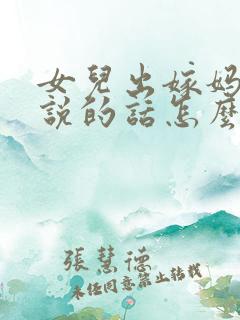 女兒出嫁媽
說的話怎麼
張慧德
未經同意禁止轉載